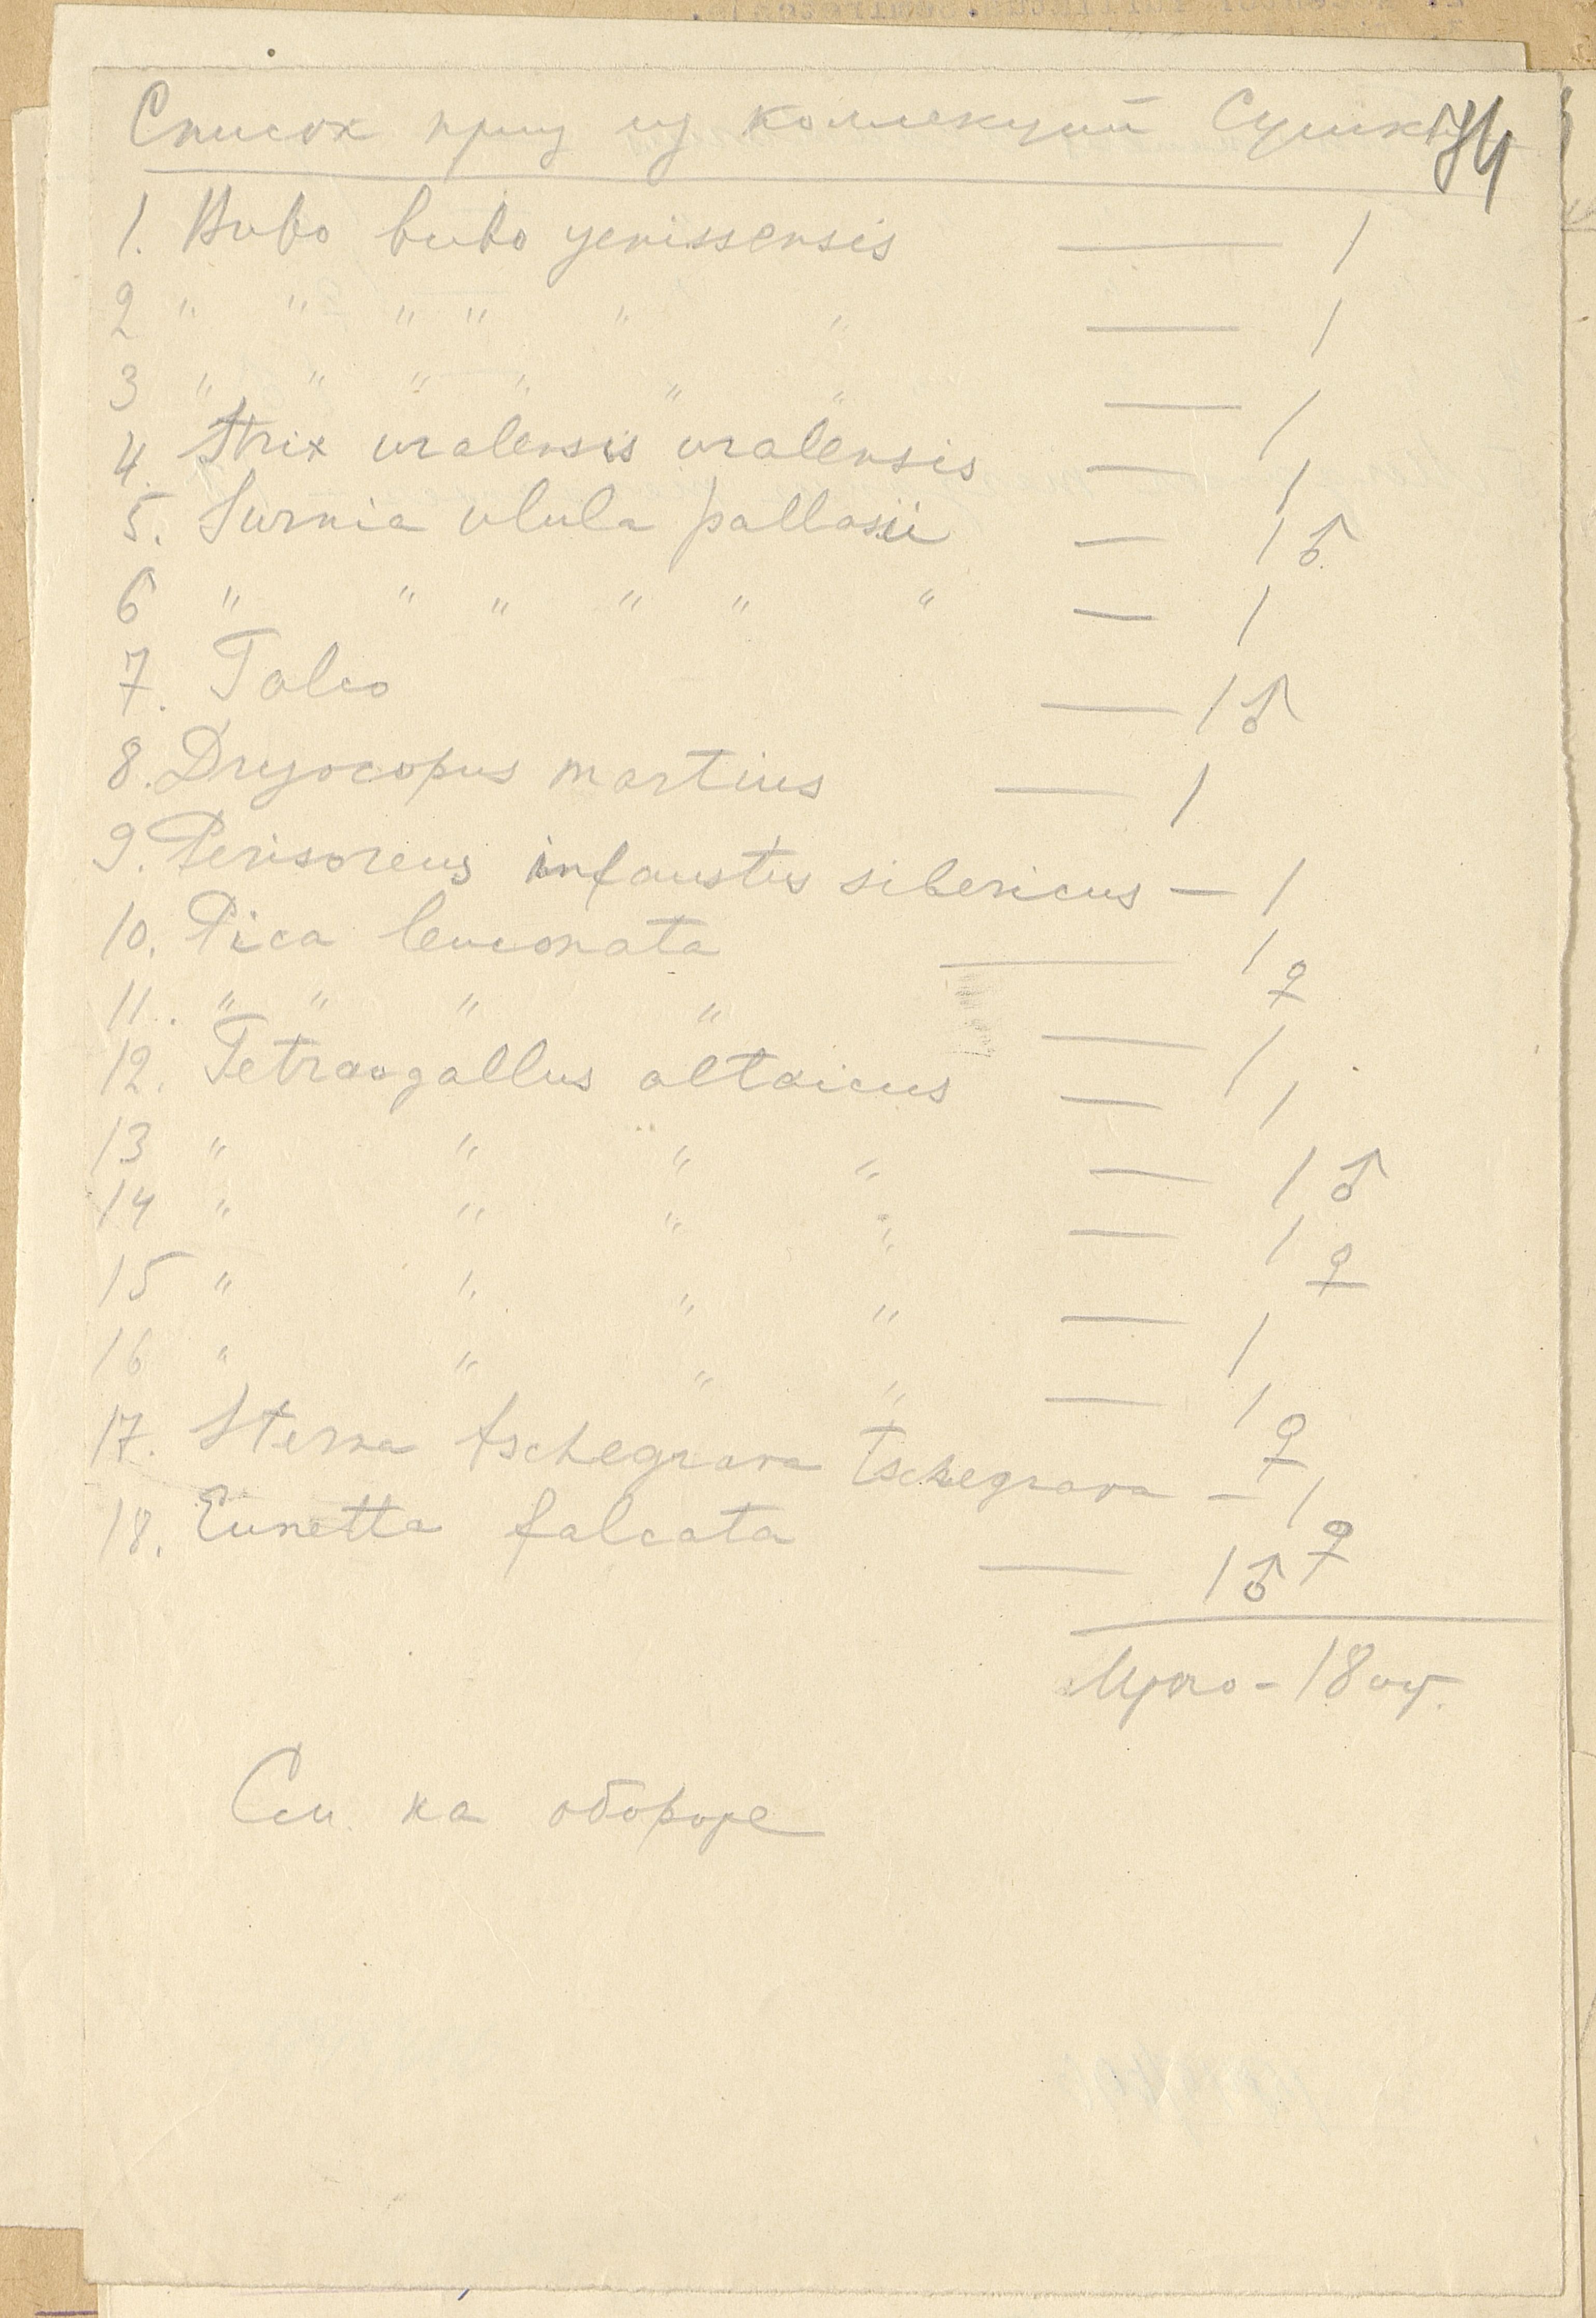 Список птиц из коллекций Сушкина
74
1. Bubo bubo yenissensis — 1
2 " " " " " " — 1
3 " " " " " " — 1
4. Strix uralensis uralensis — 1
5. Surnia ulula pallasii — 1 ♂
6 " " " " " " — 1
7. Falco — 1 ♂
8. Dryocopus martius — 1
9. Perisoreus infaustus sibericus — 1
10. Pica leuconota — 1 ♀
11. " " " " — 1
12. Tetraogallus altaicus — 1
13 " " " " — 1 ♂
14 " " " " — 1 ♀
15 " " " " — 1
16 " " " " — 1 ♀
17. Sterna tschegrava tschegrava — 1 ♀
18. Eunetta falcata — 1 ♂
Итого - 18 шт.
См. на обороте